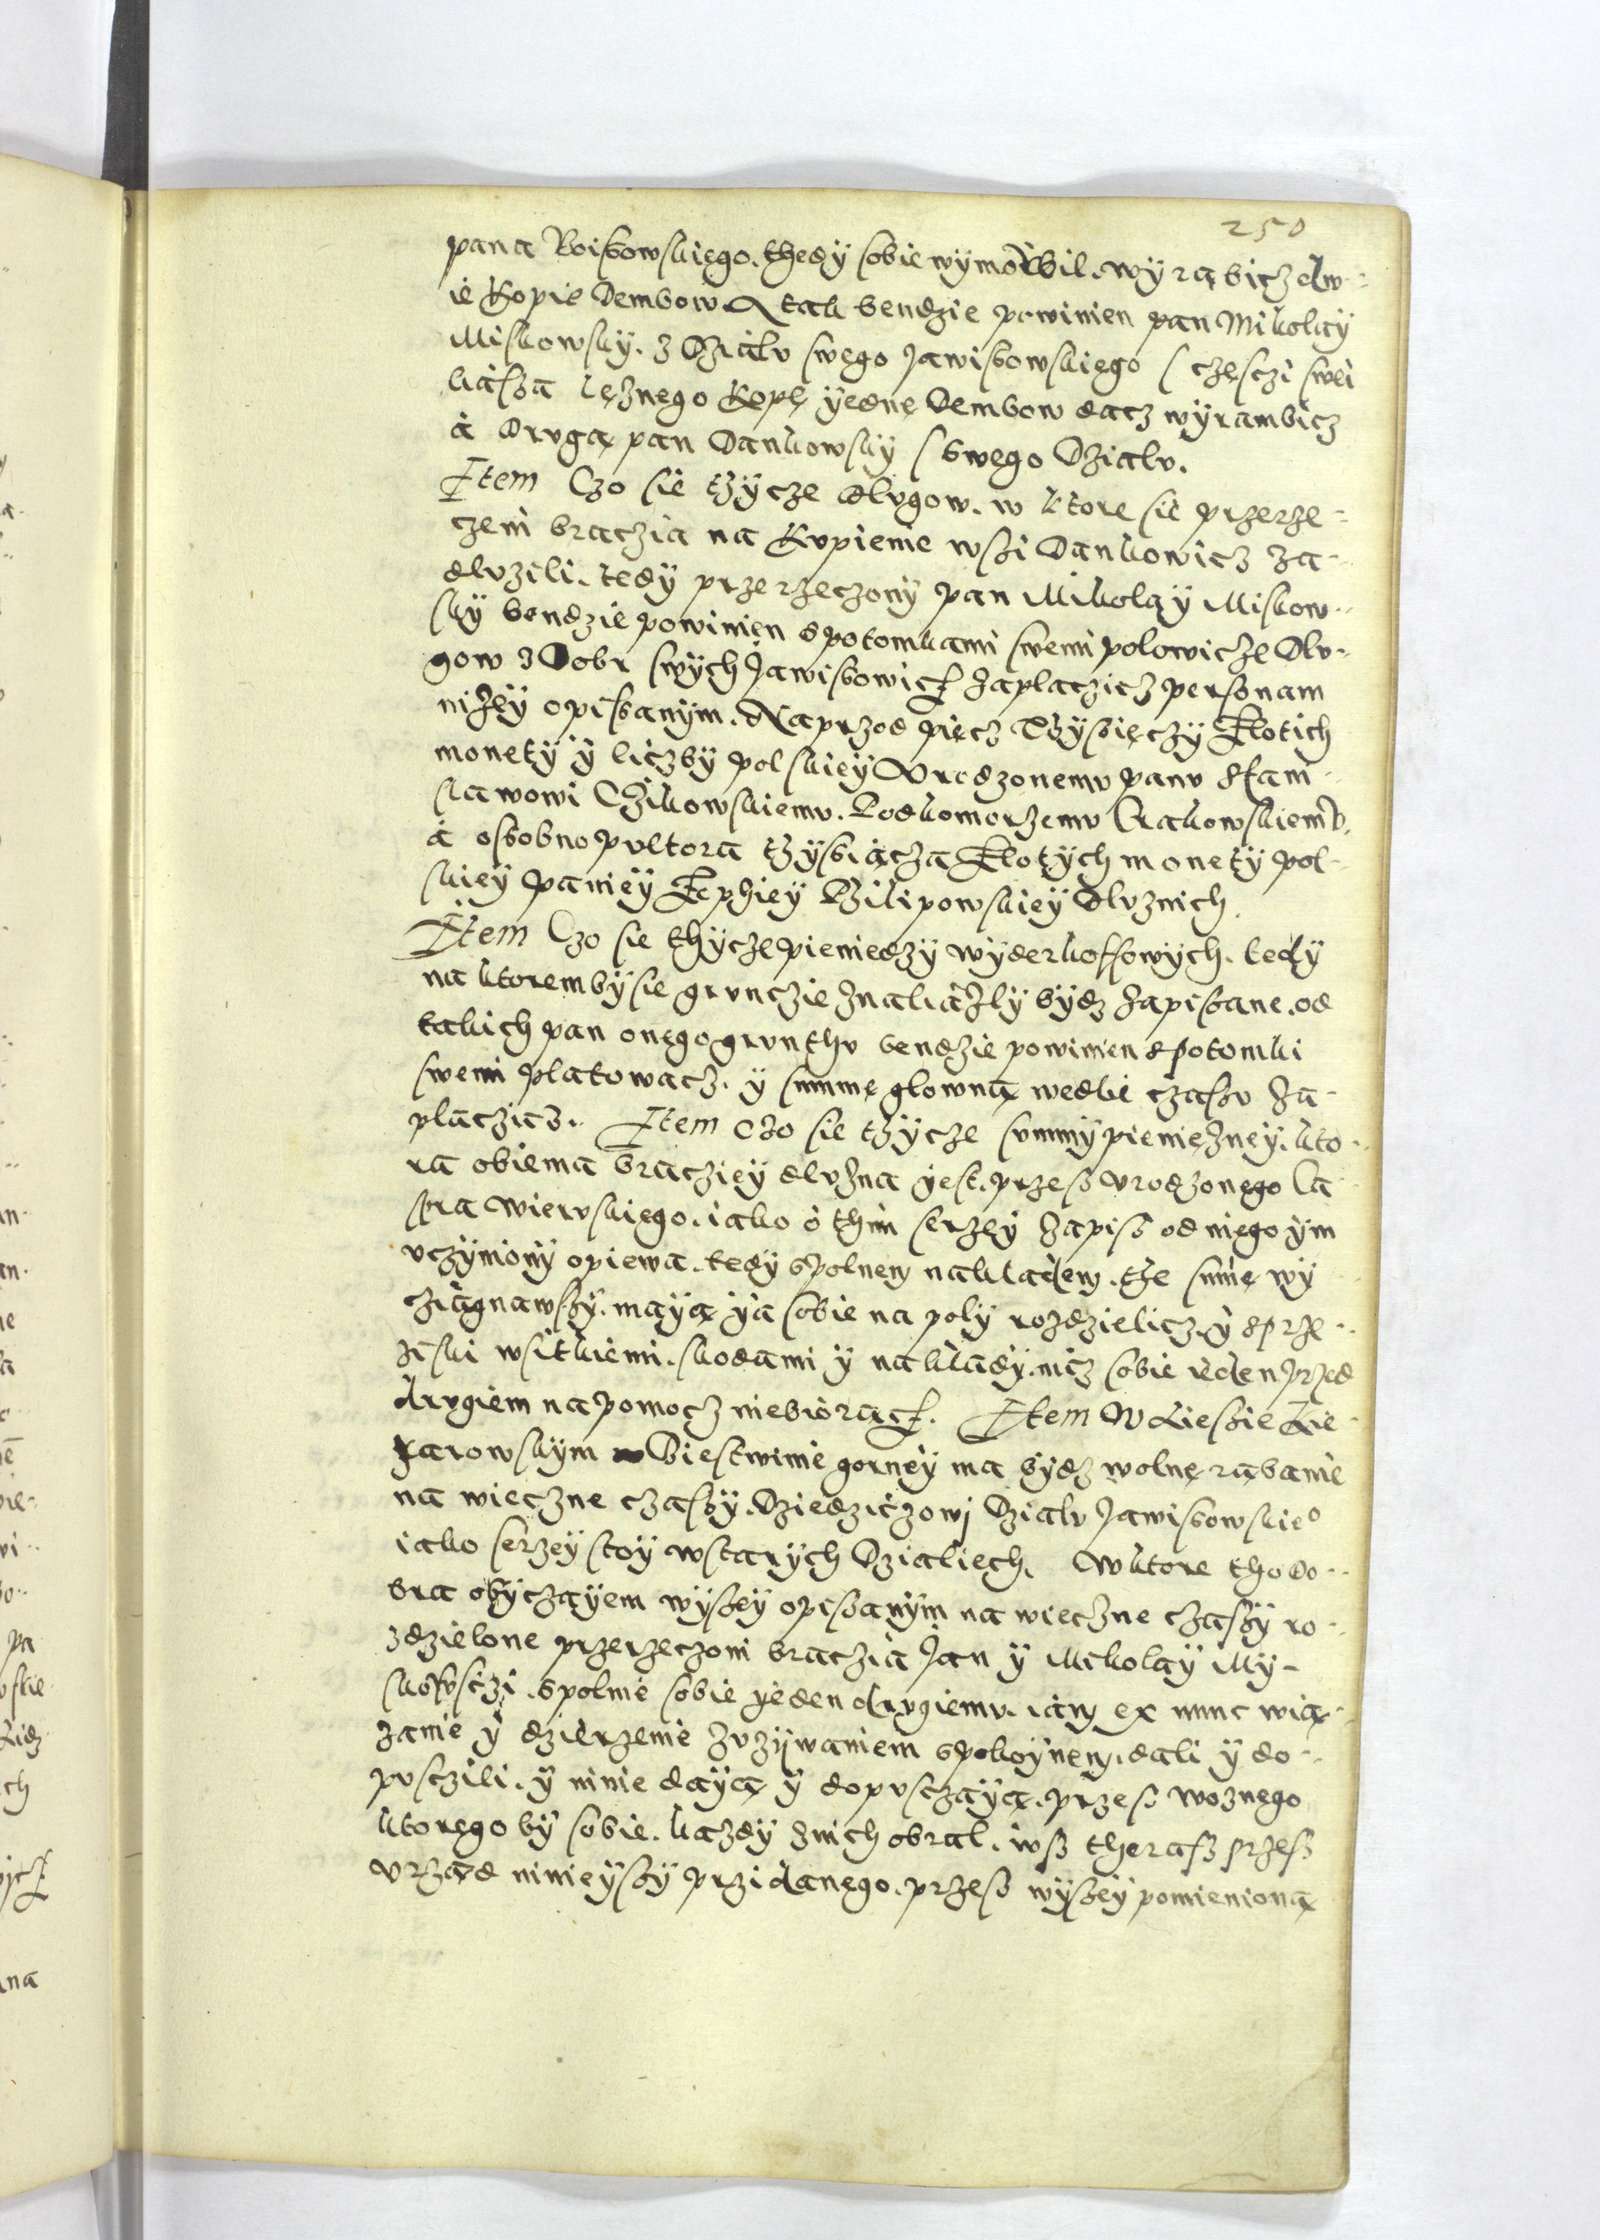 250
pana Roisowskiego. thedy sobie wymowil. wyrąbicz dw-
ie Kopie Dembow A tak bendzie powinien pan Mikolay
Miskowsky. z Działv swego Jawisowskiego s częsczi swei
lężnego Kopę yednę Dembow dacz wyrambicz
à Drvgą pan Dankowsky s swego Działv.
Item Czo sie tzycze dlvgow. w ktore sie przerze-
czeni braczia na Kvpienie wszi Dankowicz za-
dlvzili. tedy przerzeczony pan Mikolay Miskow-
sky bendzie powinien s potomkami swemi polowicze Dlv-
gow z Dobr swych Jawisowicz zaplaczicz personam
nizey opisanym. Naprzod pięcz Tzysięczy Zlotich
monety y liczby polskiey Vrodzonemv panv Stani-
slawowi Czikowskiemv. Podkomorzemv Krakowskiemv.
à osobno pvltora tzysiącza Zlotych monety pol-
skiey paniey Zophiey Philipowskiey Dlvznich.
Item Czo sie thycze pieniedzy wyderkoffowych. tedy
na ktorem by sie grvnczie znaliazly bydz zapisane. od
takich pan onego grvnthv bendzie powinien s potomki
swemi platowacz. y summę glowną wedlie czasv za-
placzicz. Item Czo sie tzycze svmmy pieniezney. kto-
ra obiema bracziey dlvzna yest. przes vrodzonego Ca
spra Wierskiego. iako o thim serzey zapis od niego ym
vczyniony opiewa. tedy spolnem nakladem. the sumę wy
cziągnawszy. mayą yą sobie na poly rozdzielicz. y s prze-
ziski wsitkiemi. skodami y naklady. nicz sobie ieden przed
drvgiem na pomocz niebiorącz. Item W Liesie Zie-
Biestwinie gorney ma bydz wolnę rąbanie
na wieczne czasy. Dziedziczowi Dzialv Jawisowskieo
iako serzey stoy wstarych Dzialiech. Wktore tho do-
bra obyczayem wyszey opisanym na wieczne czasy ro-
zdzielone przerzeczoni braczia Jan y Mikolay My-
skowsczi. spolnie sobie yeden drvgiemv. iam ex nunc wią-
zanie y dzierzenie zvzywaniem spokoynem. dali y do-
pvsczili. y ninie dayą y dopvsczayą. przes woznego
ktorego by sobie. kazdy znich obral. ivsz therasz przesz
vrząd ninieyszy przidanego. przes wyszey pomienioną